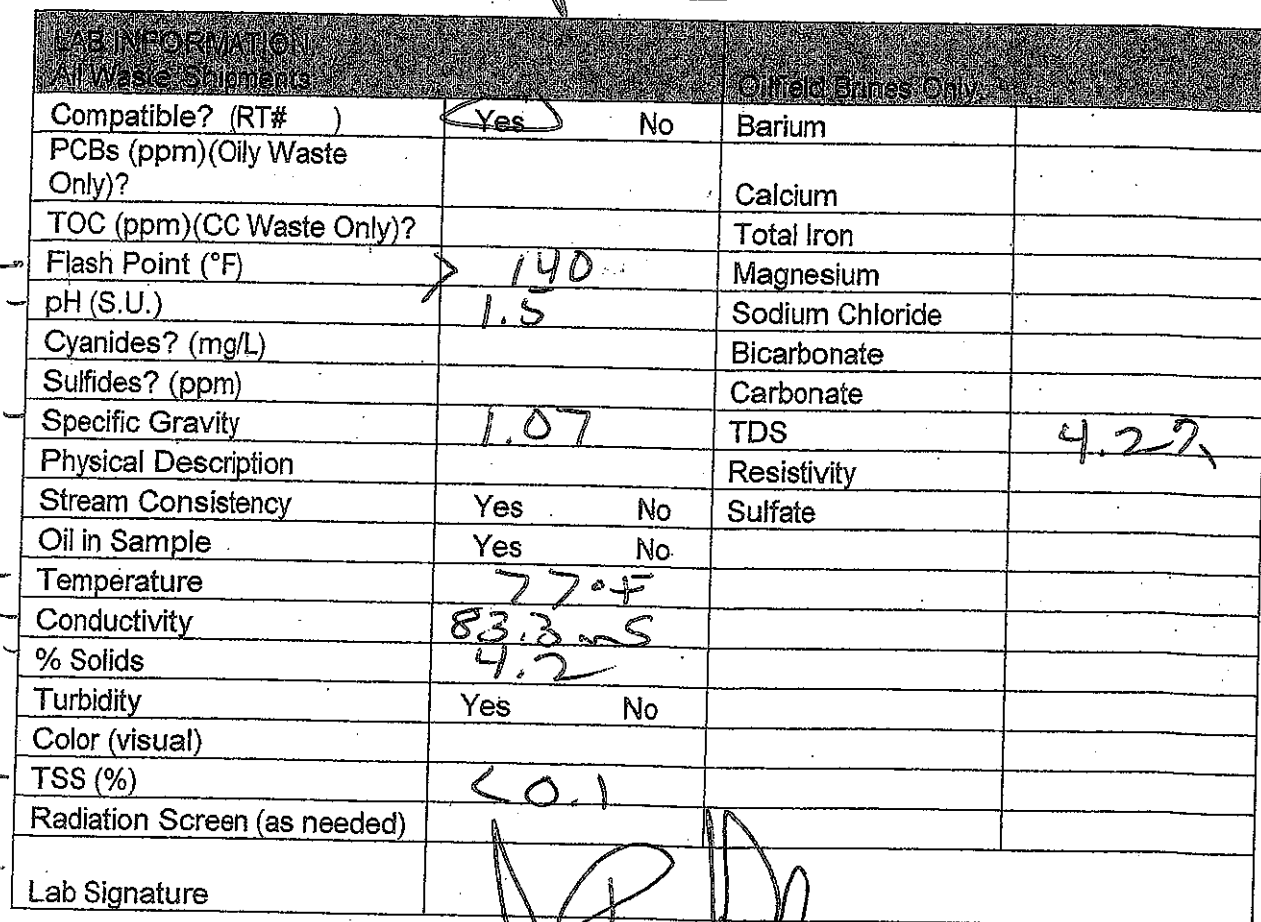 LAB INFORMATION
All Waste Shipments Oilfield Brines Only
Compatible? (RT# ) Yes No Barium
PCBs (ppm)(Oily Waste
Only)? Calcium
TOC (ppm)(CC Waste Only)? Total Iron
Flash Point (°F) > 140 Magnesium
pH (S.U.) 1.5 Sodium Chloride
Cyanides? (mg/L) Bicarbonate
Sulfides? (ppm) Carbonate
Specific Gravity 1.07 TDS 4.2%
Physical Description Resistivity
Stream Consistency Yes No Sulfate
Oil in Sample Yes No
Temperature 77°F
Conductivity 83.3 mS
% Solids 4.2
Turbidity Yes No
Color (visual)
TSS (%) <0.1
Radiation Screen (as needed)
Lab Signature